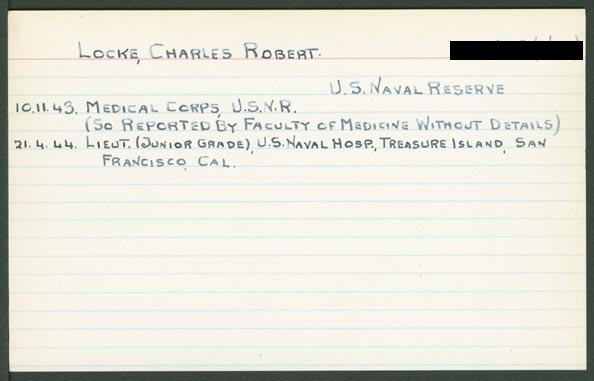 LOCKE, CHARLES ROBERT.
U.S. NAVAL RESERVE
10.11.43. MEDICAL CORPS, U.S.N.R.
(SO REPORTED BY FACULTY OF MEDICINE WITHOUT DETAILS)
21.4.44. LIEUT. (JUNIOR GRADE), U.S. NAVAL HOSP., TREASURE ISLAND, SAN
FRANCISCO, CAL.